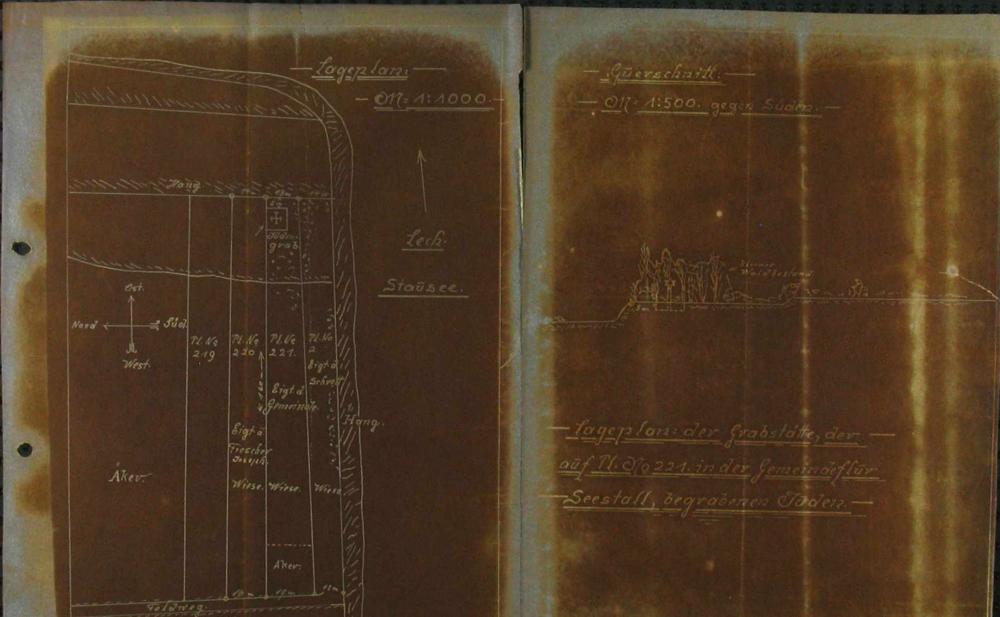 Lageplan:
M = 1:1000.
Hang
Juden-
grab
Lech.
Staüsee.
Ost.
Nord
Süd.
West.
Pl. No
219
Pl. No
220
Pl. No
221.
Pl. No
Eigt. d.
Schrott
Eigt. d.
Gemeinde.
Hang.
Eigt. d.
Joseph.
Äker.
Wiese.
Wiese.
Wiese
Äker.
Feldweg.
Querschnitt:
M = 1:500. gegen Süden.
Waldbestand
Lageplan: der Grabstätte, der
aüf Pl. No 221. in der Gemeindeflür
Seestall, begrabenen Jüden.